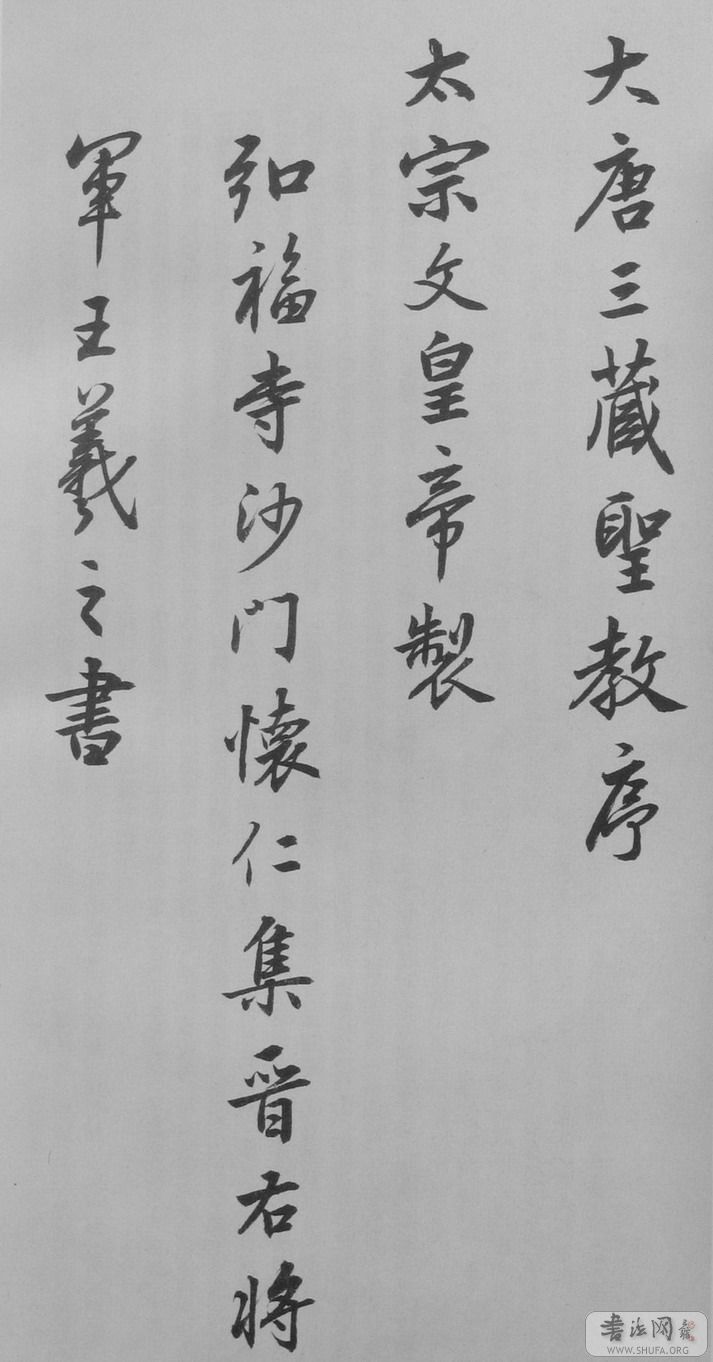 大唐三藏聖教序
太宗文皇帝製
弘福寺沙門懷仁集晉右將
軍王羲之書
書法网
WWW.SHUFA.ORG